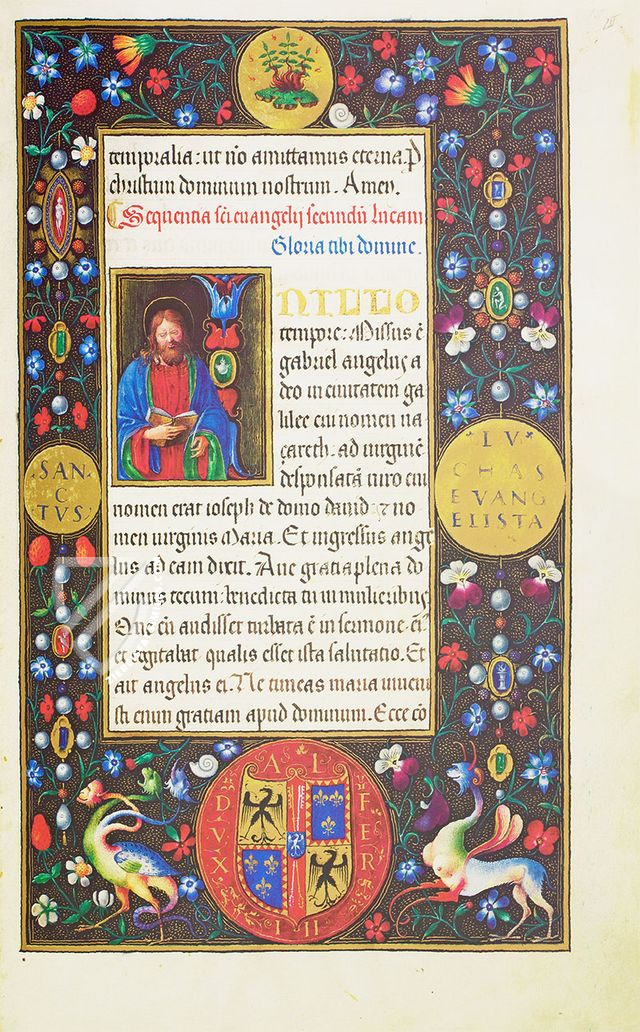 15
temporalia: ut nõ amittamus eterna. P
christum dominum nostrum. Amen.
Sequentia sc̃i euangelij secundũ Lucam
Gloria tibi domine.
N ILLO
tempore: Missus ẽ
gabriel angelus a
deo in ciuitatem ga
lilee cui nomen na
çareth. ad uirginẽ
desponsatã uiro cui
nomen erat ioseph de domo dauid: ⁊ no
men uirginis Maria. Et ingressus ange
lus ad eam dixit. Aue gratia plena do
minus tecum: benedicta tu in mulieribus
Que cũ audisset turbata ẽ in sermone. eiꝰ
et cogitabat qualis esset ista salutatio. Et
ait angelus ei. Ne timeas maria inueni
sti enim gratiam apud dominum. Ecce cõ
SAN
C
TVS
LV
CHAS
EVANG
ELISTA
ALFER
II
DVX